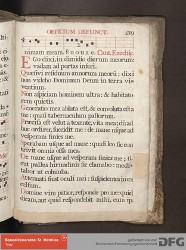 OFFICIUM DEFUNCT.
nimam meam. Cant. Ezechie.
EGo dixi, in dimidio dierum meorum:
vadam ad portas inferi.
Quæsivi residuum annorum meorum: dixi
non videbo Dominum Deum in terra vi-
ventium.
Non aspiciam hominem ultra: & habitato-
rem quietis.
Generatio mea ablata est, & convoluta est a
me: quasi tabernaculum pastorum.
Præcisa est velut a texente, vita mea; dum ad-
huc ordirer, succidit me: de mane usque ad
vesperam finies me.
Sperabam usque ad mane: quasi leo sic con-
trivit omnia ossa mea.
De mane usque ad vesperam finies me: si-
cut pullus hirundinis sic clamabo: medi-
tabor ut columba.
Attenuati sunt oculi mei: suspicientes in ex-
celsum.
Domine vim patior, responde pro me: quid
dicam, aut quid respondebit mihi, cum ip-